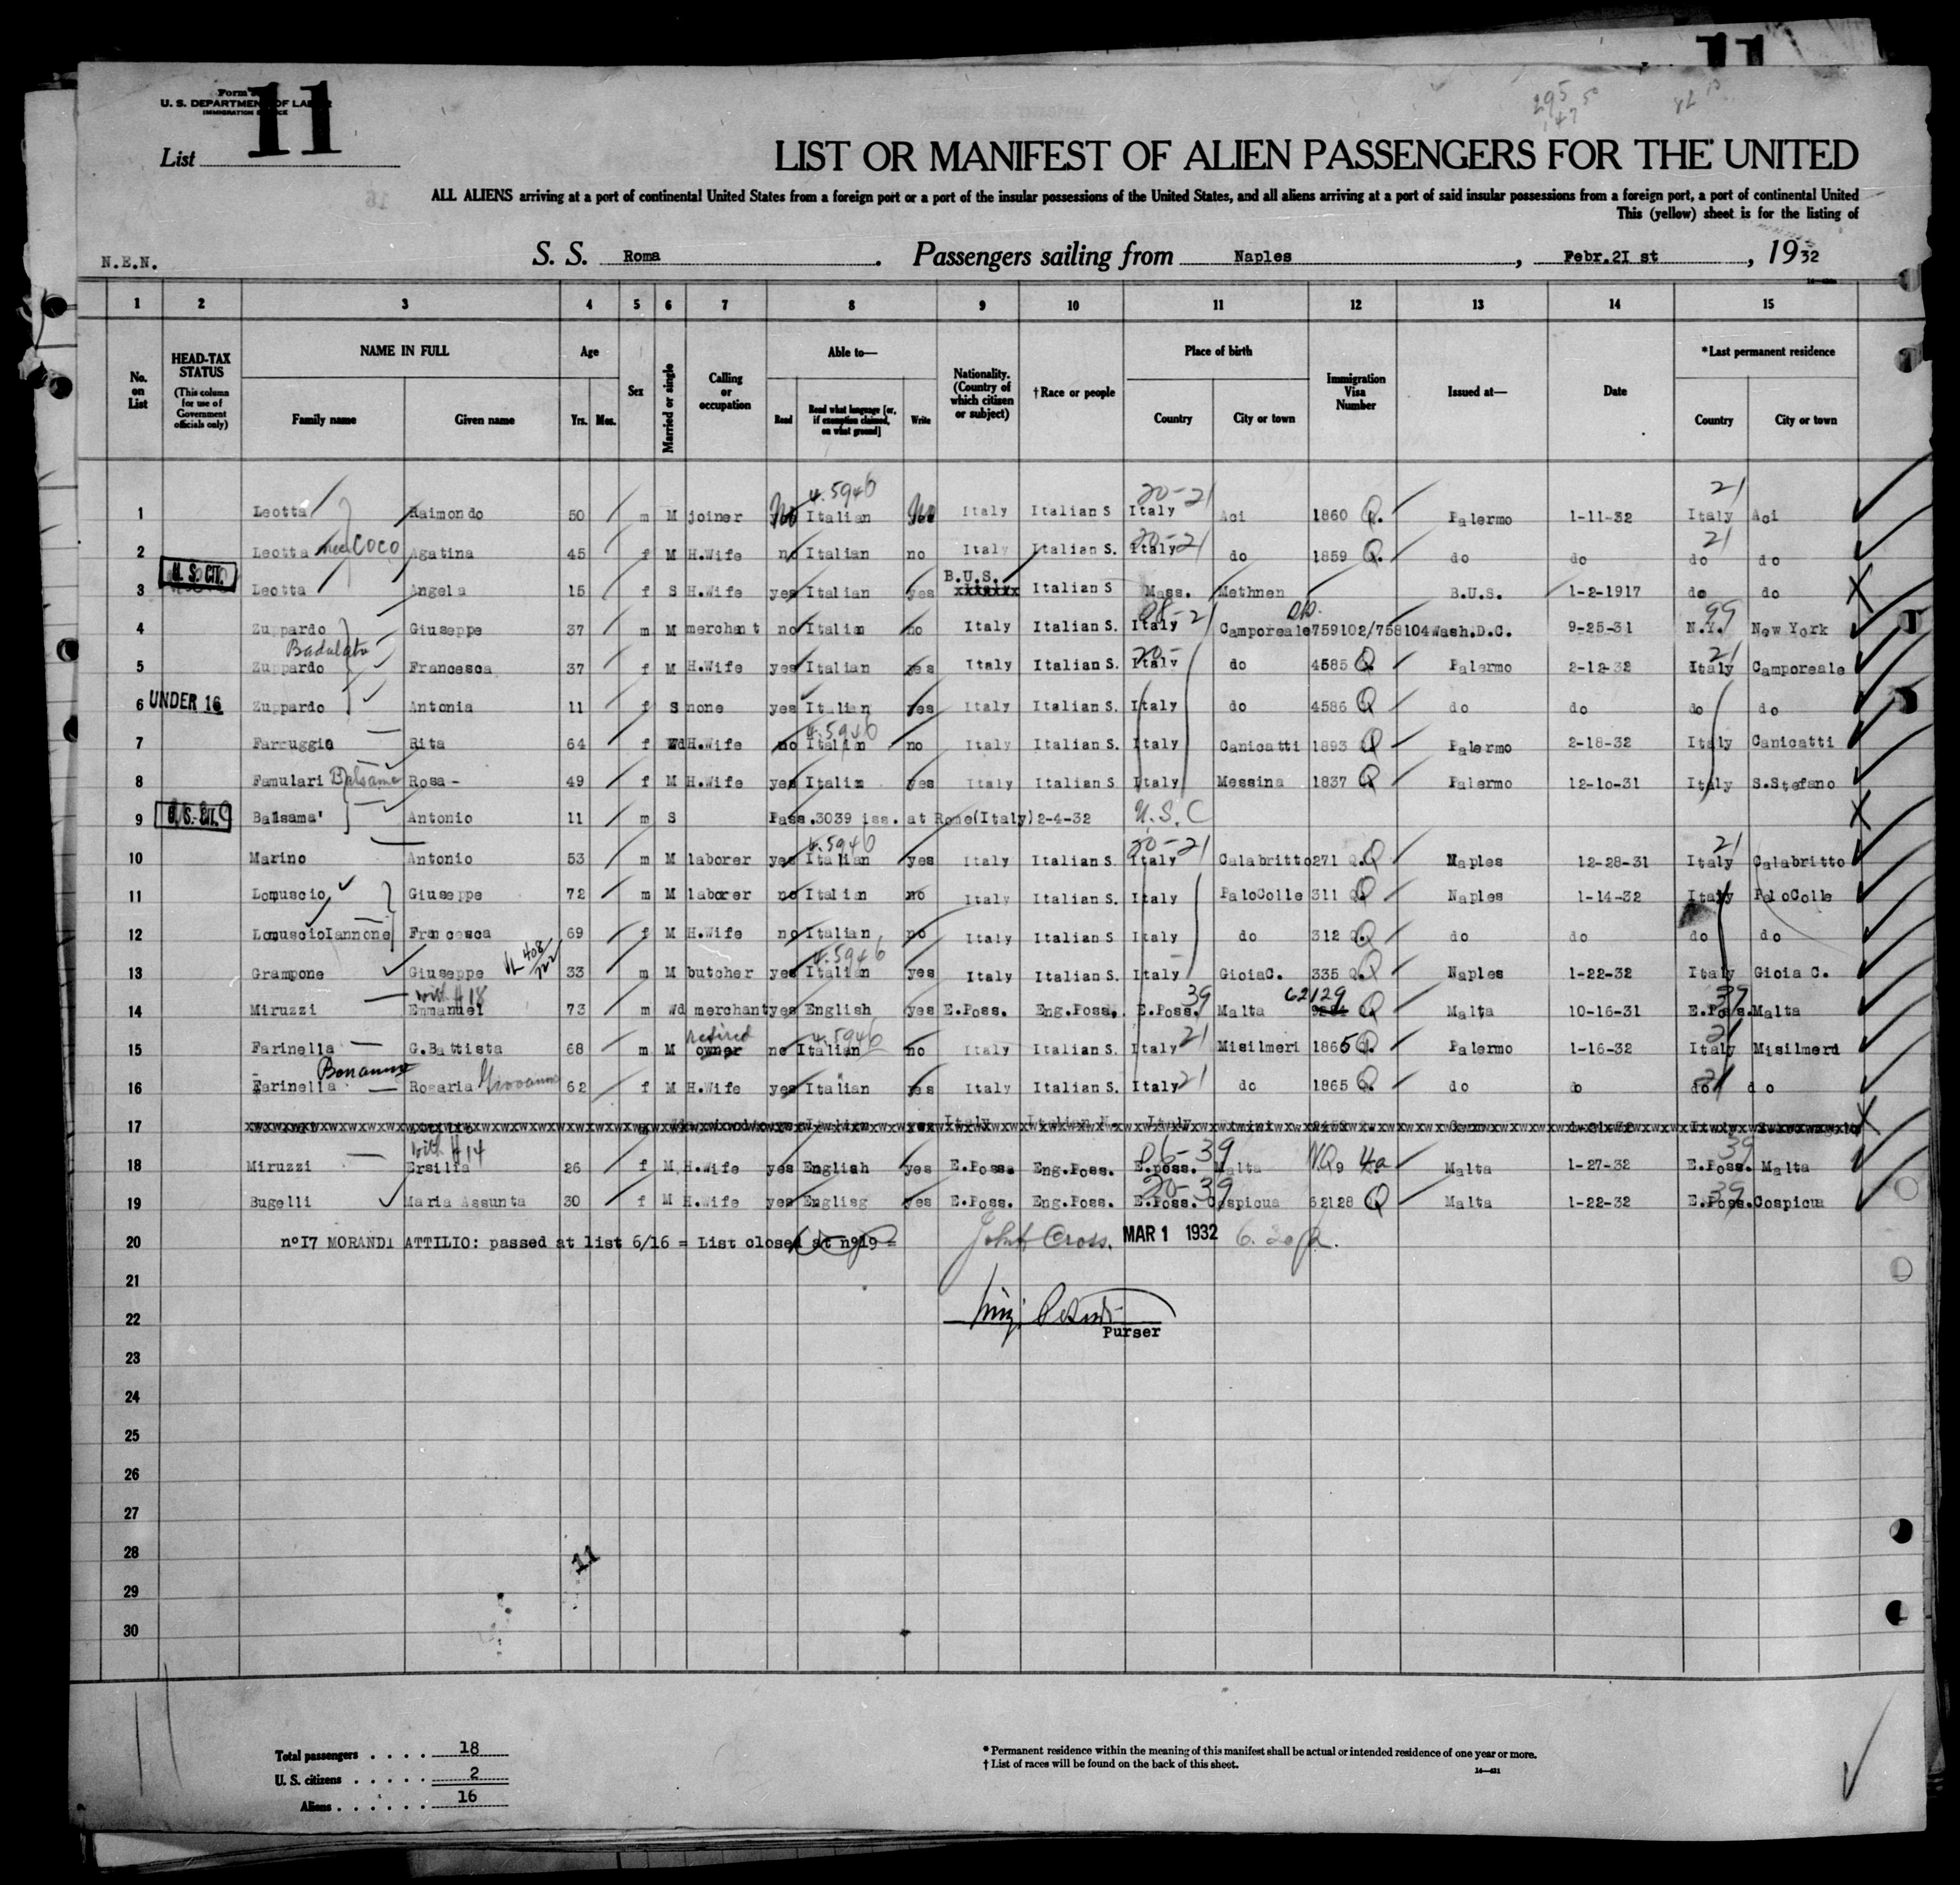 11
Form
U. S. DEPARTMENT OF LABOR
IMMIGRATION SERVICE
List 11
295 50
147
LIST OR MANIFEST OF ALIEN PASSENGERS FOR THE UNITED
ALL ALIENS arriving at a port of continental United States from a foreign port or a port of the insular possessions of the United States, and all aliens arriving at a port of said insular possessions from a foreign port, a port of continental United
This (yellow) sheet is for the listing of
N.E.N. S. S. Roma. Passengers sailing from Naples, Febr.2I st, 1932
1 2 3 4 5 6 7 8 9 10 11 12 13 14 15
No. on List HEAD-TAX STATUS (This column for use of Government officials only) NAME IN FULL Family name Given name Age Yrs. Mos. Sex Married or single Calling or occupation Able to— Read Read what language [or, if exemption claimed, on what ground] Write Nationality. (Country of which citizen or subject) † Race or people Place of birth Country City or town Immigration Visa Number Issued at— Date *Last permanent residence Country City or town
4.5946 20-21 21
1 Leotta Raimondo 50 m M joiner No Italian No Italy Italian S Italy Aci 1860 Q. Palermo 1-11-32 Italy Aci
20-21 21
2 Leotta nee Coco Agatina 45 f M H.Wife no Italian no Italy Italian S. Italy do 1859 Q. do do do do
U. S. CIT. B.U.S.
3 Leotta Angela 15 f S H.Wife yes Italian yes Italian S Mass. Methnen B.U.S. 1-2-1917 do do
08-21 99
4 Zuppardo Giuseppe 37 m M merchant no Italian no Italy Italian S. Italy Camporeale 759102/758104 Wash.D.C. 9-25-31 N.Y. New York
Badalato 20- 21
5 Zuppardo Francesca 37 f M H.Wife yes Italian yes Italy Italian S. Italy do 4585 Q Palermo 2-12-32 Italy Camporeale
6 UNDER 16 Zuppardo Antonia 11 f S none yes Italian yes Italy Italian S. Italy do 4586 Q do do do do
4.5946
7 Farruggio Rita 64 f Wd H.Wife no Italian no Italy Italian S. Italy Canicatti 1893 Q Palermo 2-18-32 Italy Canicatti
8 Famulari Balsamo Rosa - 49 f M H.Wife yes Italian yes Italy Italian S Italy Messina 1837 Q Palermo 12-10-31 Italy S.Stefano
9 U. S. CIT. Balsama' Antonio 11 m S Pass.3039 iss. at Rome(Italy)2-4-32 U.S.C
4.5946 20-21 21
10 Marino Antonio 53 m M laborer yes Italian yes Italy Italian S. Italy Calabritto 271 Q.Q Naples 12-28-31 Italy Calabritto
11 Lomuscio Giuseppe 72 m M laborer no Italian no Italy Italian S. Italy PaloColle 311 QQ Naples 1-14-32 Italy PaloColle
12 LomuscioIannone Francesca 69 f M H.Wife no Italian no Italy Italian S Italy do 312 Q.Q do do do do
4.5946
13 Grampone Giuseppe 33 m M butcher yes Italian yes Italy Italian S. Italy GioiaC. 335 Q.Q Naples 1-22-32 Italy Gioia C.
with #18 39 62129 39
14 Miruzzi Emmanuel 73 m Wd merchant yes English yes E.Poss. Eng.Poss. E.Poss. Malta Q Malta 10-16-31 E.Poss. Malta
retired 4.5946
15 Farinella G.Battista 68 m M owner no Italian no Italy Italian S. Italy 21 Misilmeri 1865 Q. Palermo 1-16-32 Italy 21 Misilmeri
Bonanno
16 Farinella Rosaria Giovanna 62 f M H.Wife yes Italian yes Italy Italian S. Italy 21 do 1865 Q. do do do 21 do
17
with #14 06-39 39
18 Miruzzi Ersilia 26 f M. H.Wife yes English yes E.Poss. Eng.Poss. E.poss. Malta NQ. 4a Malta 1-27-32 E.Poss. Malta
20-39 39
19 Bugelli Maria Assunta 30 f M H.Wife yes Englisg yes E.Poss. Eng.Poss. E.Poss. Cospicua 62128 Q Malta 1-22-32 E.Poss. Cospicua
20 n°I7 MORANDi ATTILIO: passed at list 6/16 = List closed at n°19 = John Cross. MAR 1 1932
21
22
Purser
23
24
25
26
27
28
11
29
30
Total passengers . . . . 18
U. S. citizens . . . . . 2
Aliens . . . . . . 16
* Permanent residence within the meaning of this manifest shall be actual or intended residence of one year or more.
† List of races will be found on the back of this sheet.
14—421